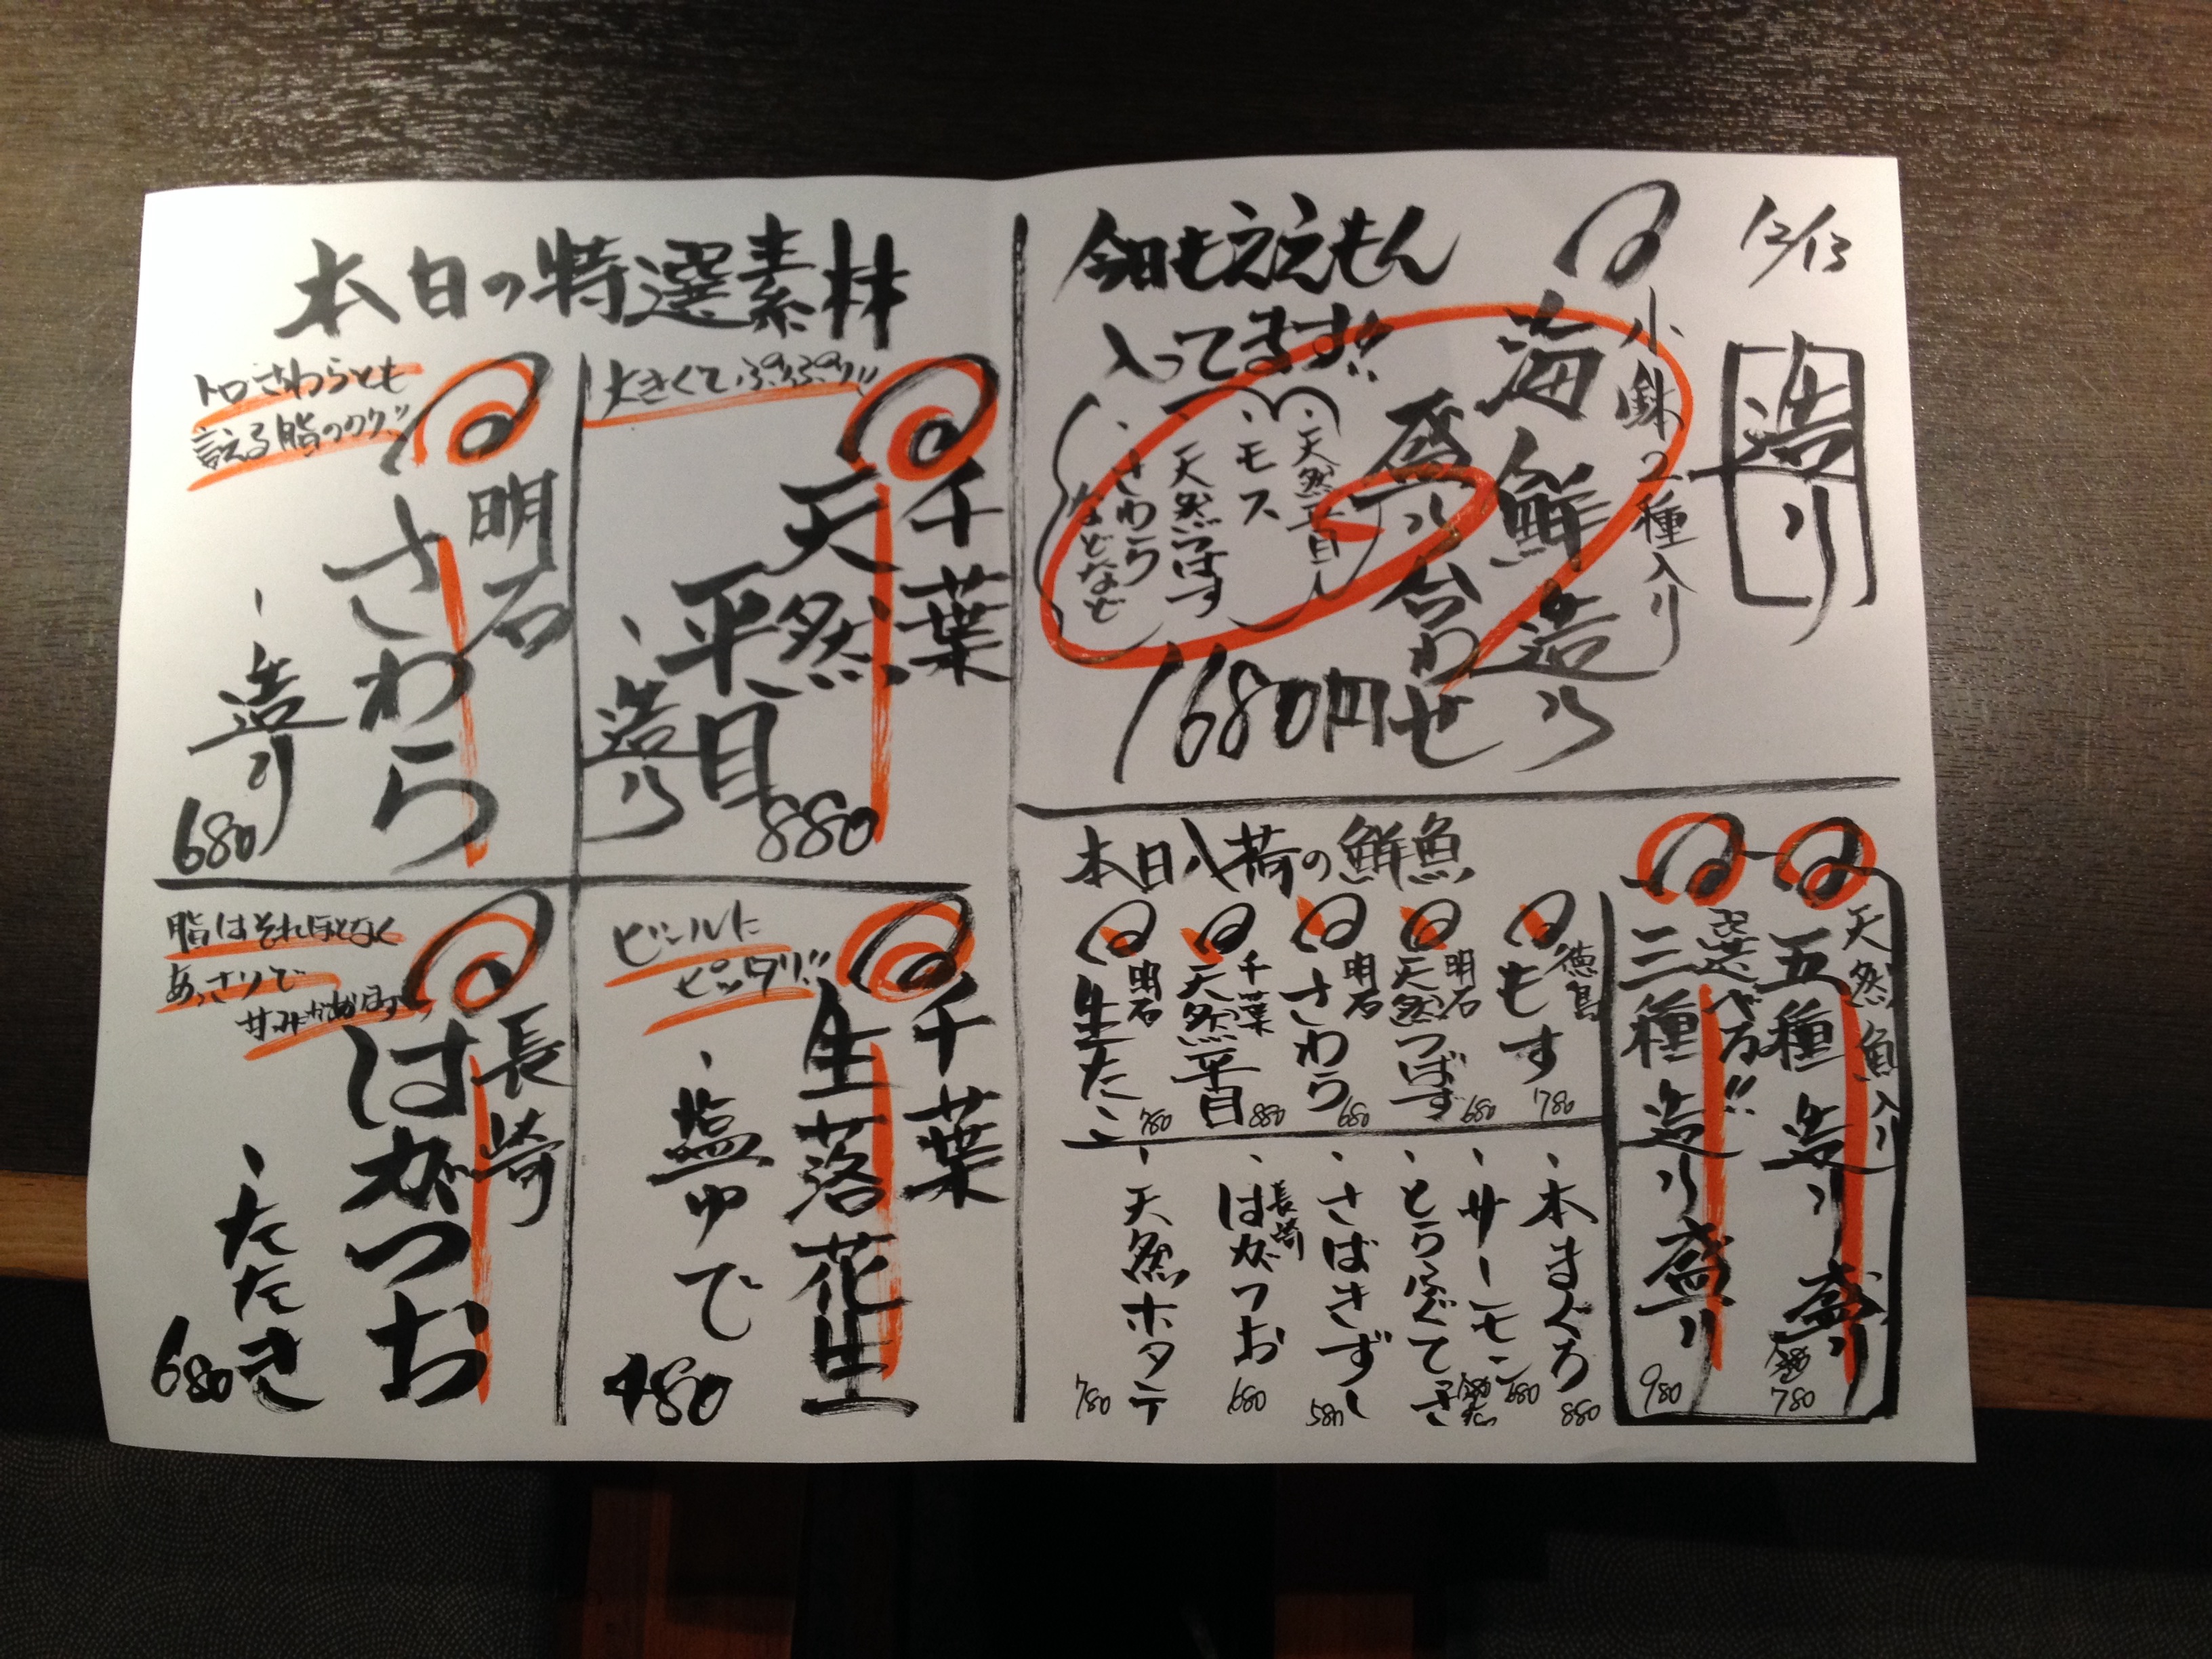 12/13
造り
小鉢2種入り
海鮮造り
盛り合わせ
1680円
今日もええもん
入ってます!!
・天然平目
・モス
・天然つばす
・さわら
などなど
天然魚入り
五種造り盛り
780
選べる!!
三種造り盛り
980
本日入荷の鮮魚
徳島
もす
780
明石
天然つばす
680
明石
さわら
680
千葉
天然平目
880
明石
生たこ
780
・本まぐろ
880
・サーモン
680
・とらふぐてっさ
・さばきずし
580
長崎
・はがつお
680
・天然ホタテ
780
本日の特選素材
大きくてぷりぷり!!
千葉
天然
平目
・造り
880
トロさわらとも
言える脂のノリ!!
明石
さわら
・造り
680
ビールに
ピッタリ!!
千葉
生落花生
・塩ゆで
480
脂はそれほどなく
あっさりで
甘みがあります
長崎
はがつお
・たたき
680